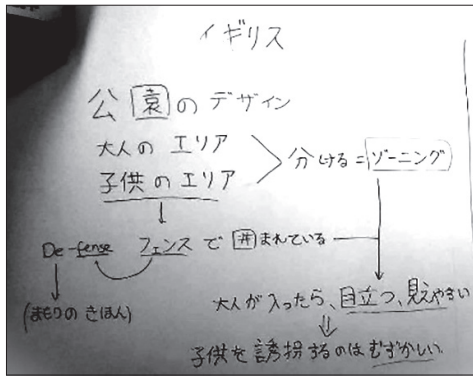 イギリス
公園のデザイン
大人のエリア
子供のエリア
分ける=ゾーニング
De-fense フェンスで囲まれている
(まもりのきほん)
大人が入ったら、目立つ、見えやすい
子供を誘拐するのはむずかしい